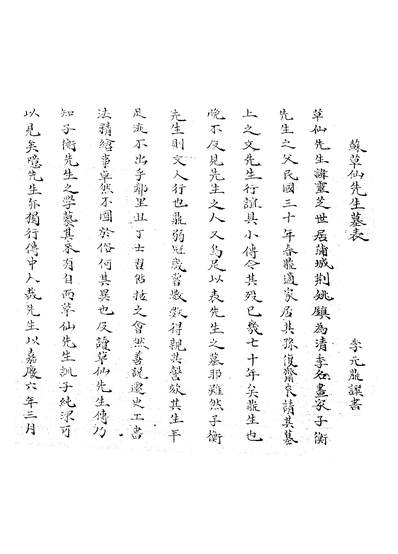 蘇草仙先生墓表
李元鼎譔書
草仙先生諱靈芝世居蒲城荆姚鎮為清季名畫家子衡
先生之父民國三十年春鼎適家居其孫復齋來請其墓
上之文先生行誼具小傳今其歿已幾七十年矣鼎生也
晚不及見先生之人又烏足以表先生之墓耶雖然子衡
先生則丈人行也鼎弱冠歲嘗數數得親其謦欬其生平
足迹不出乎鄉里丑丁士習佔技之會然善說遷史工書
法精繪事卓然不囿於俗何其異也及讀草仙先生傳乃
知子衡先生之學藝其來有自而草仙先生 子純潔可
以見矣噫先生亦獨行傳中人哉先生以嘉慶六年三月